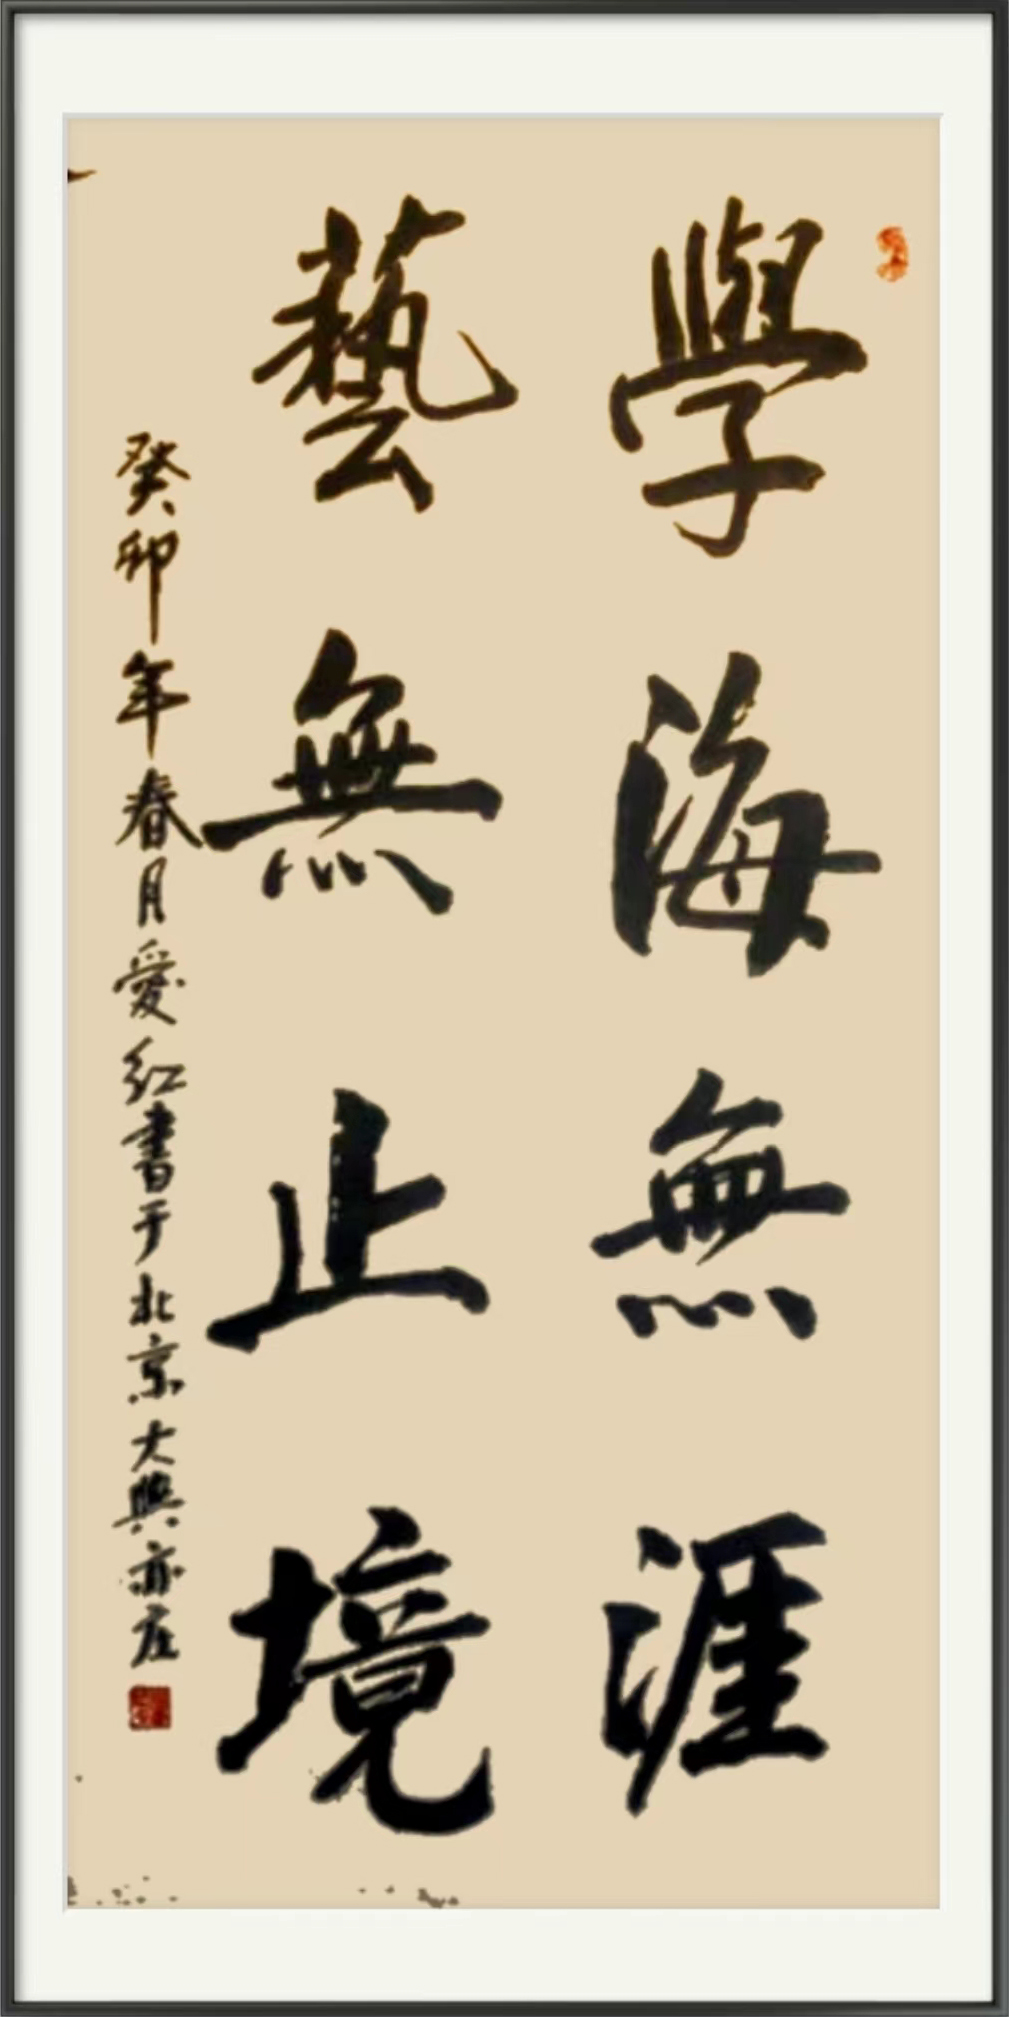 學海無涯
藝無止境
癸卯年春月愛紅書于北京大興亦庄